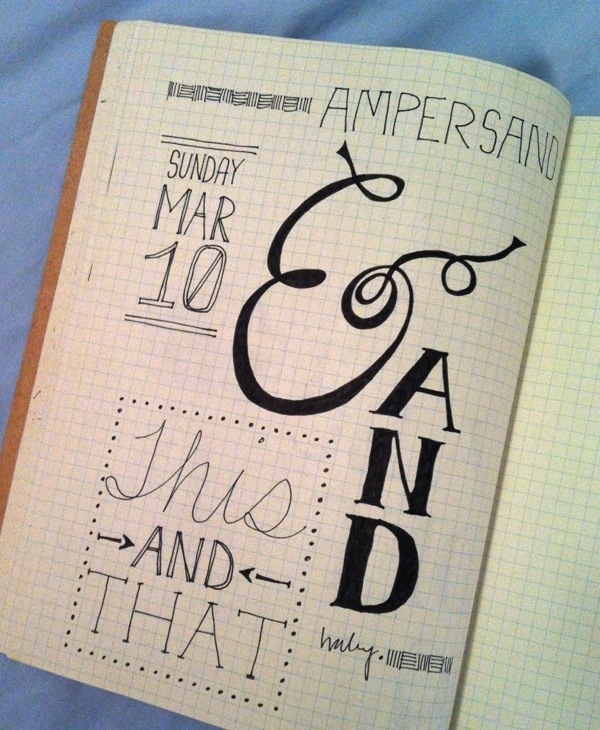 AMPERSAND
SUNDAY
MAR
10
&
AND
This
AND
THAT
haley.